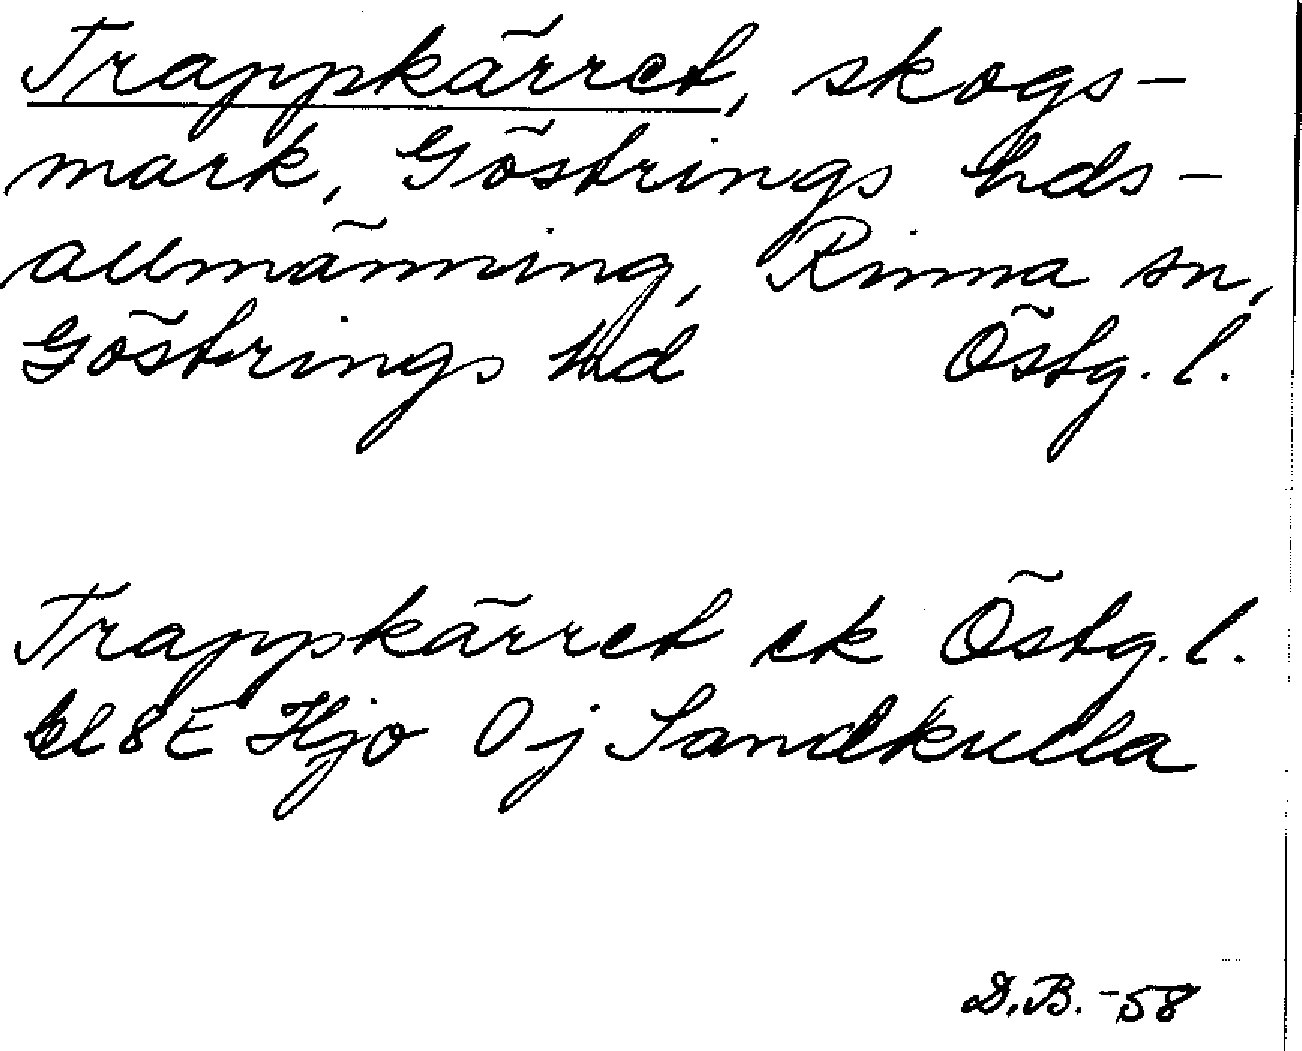 Trappkärret, skogs-
mark, Göstrings hds-
allmänning, Rinna sn,
Göstrings hd Östg. l.
Trappkärret ek Östg. l.
bl 8E Hjo Oj Sandkulla
D.B. -58